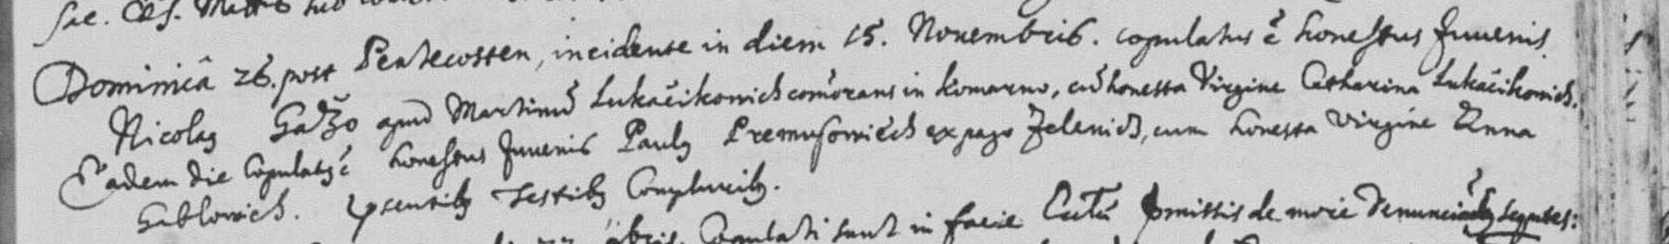 Sac. Cæs. Mattis sub
Dominicâ 26. post Pentecosten, incidente in diem 15. Novembris. copulatus ē honestus Juvenis
Nicolaꝰ Gažo apud Martinū Lukačikowich comorans in Komarno, cū honesta Virgine Catharina Lukačikowich.
Eadem die copulatꝰ ē honestus Juvenis Paulꝰ Premusowiech ex pago Jelenich, cum honesta virgine Anna
Gablowich. pñsentibꝰ Testibꝰ Compluribꝰ.
Copulati sunt in facie Ecclæ pmissis de more Denunciaōibꝰ seqntes: